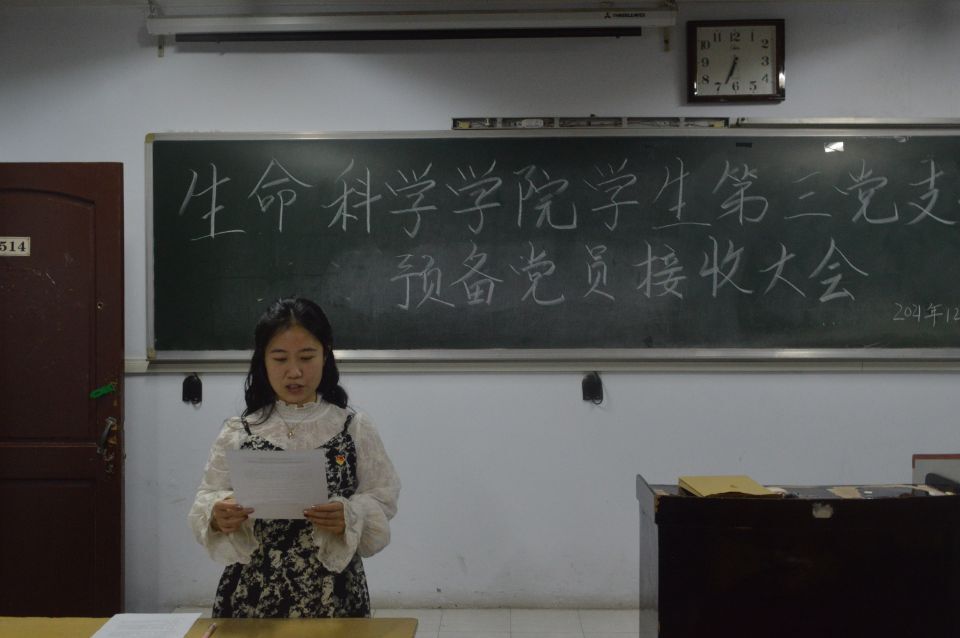 生命科学学院学生第三党支
预备党员接收大会
2021年12
514
12
11
10
9
8
7
6
5
4
3
2